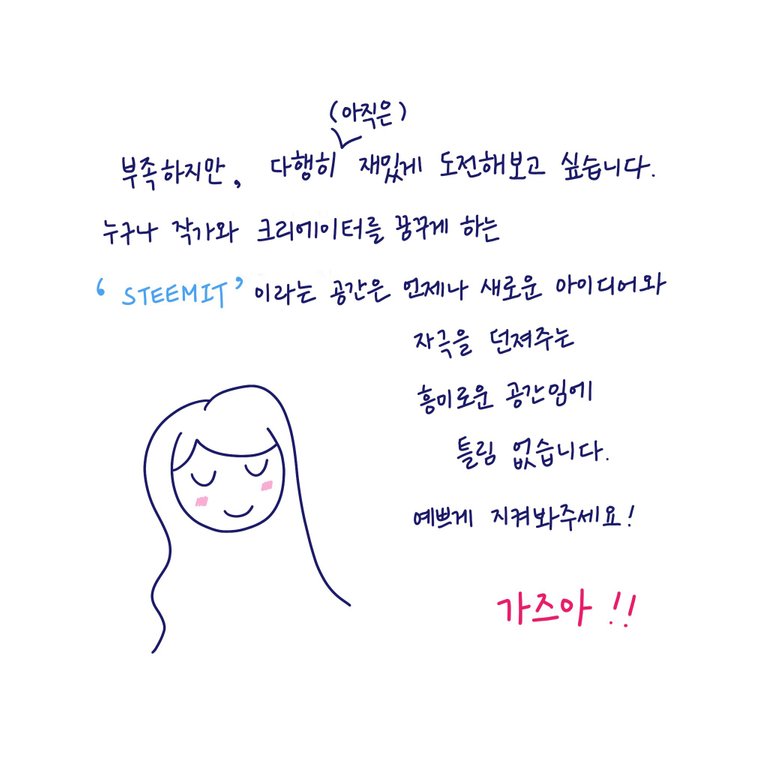 (아직은)
부족하지만, 다행히 재밌게 도전해보고 싶습니다.
누구나 작가와 크리에이터를 꿈꾸게 하는
‘STEEMIT’이라는 공간은 언제나 새로운 아이디어와
자극을 던져주는
흥미로운 공간임에
틀림 없습니다.
예쁘게 지켜봐주세요!
가즈아 !!